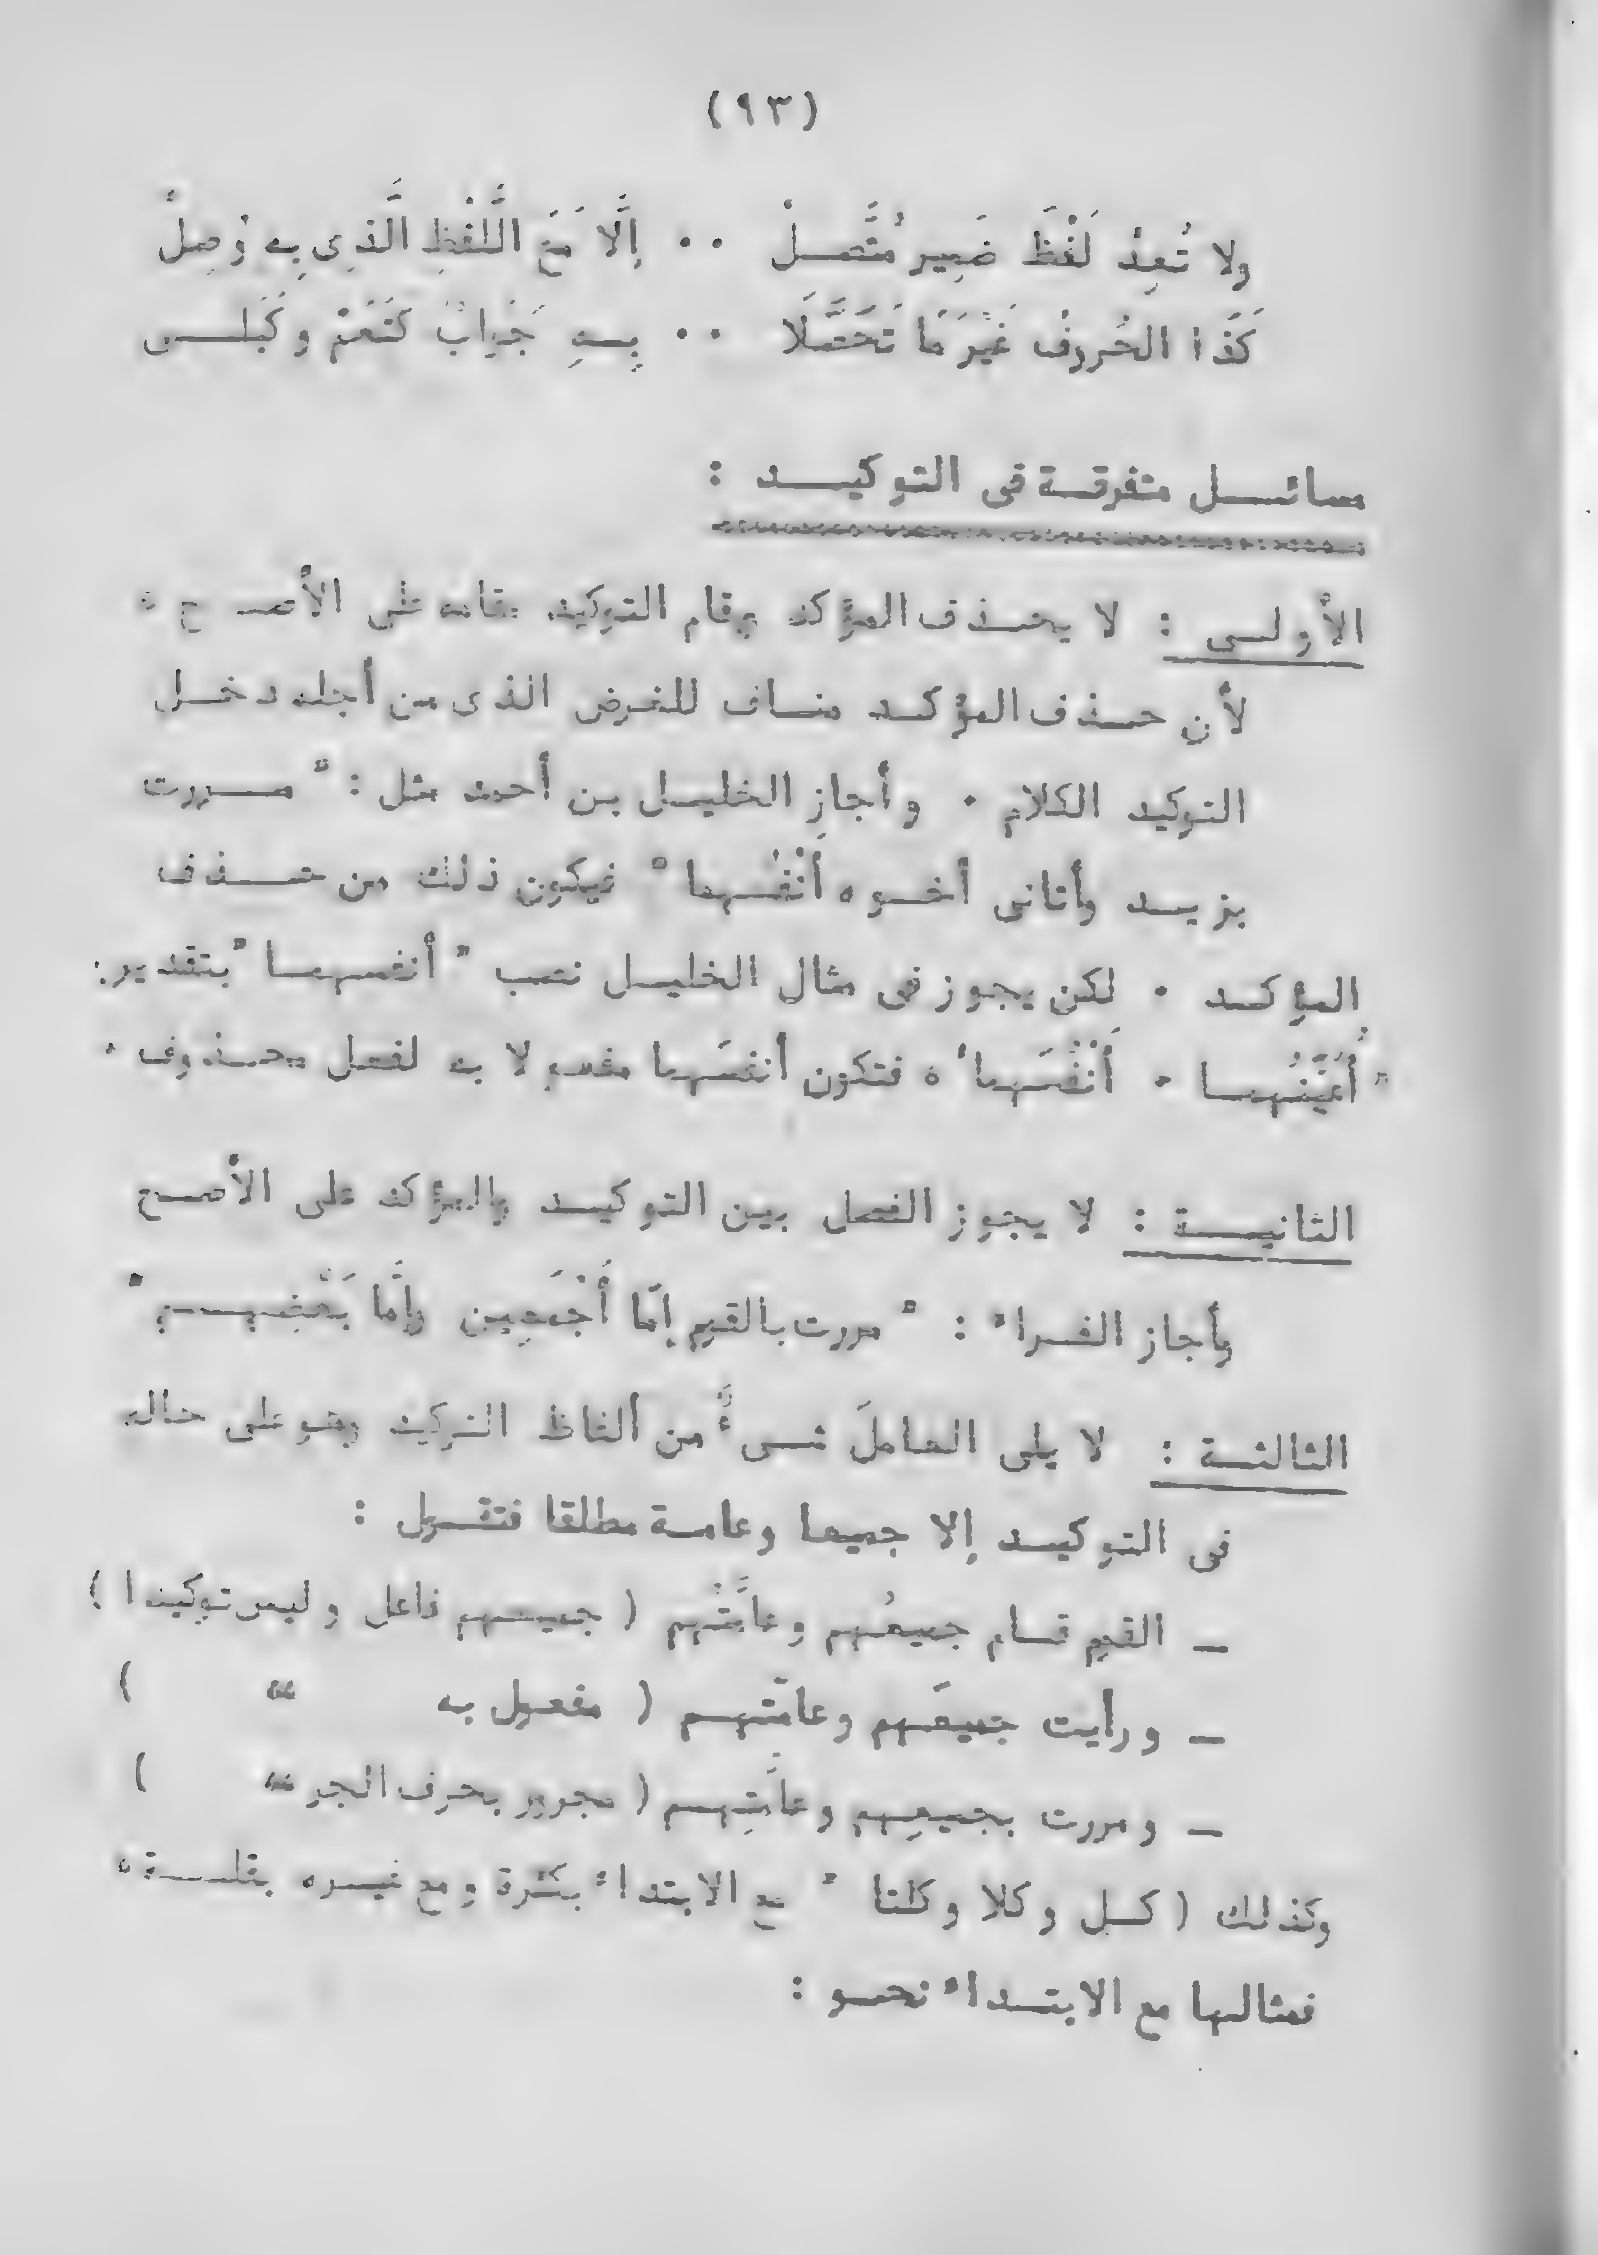 (٩٣)
ولا تُعِدْ لَفْظَ ضَمِيرٍ مُتَّصِلْ .. إِلَّا مَعَ الَّلفْظِ الَّذِى بِهِ وُصِلْ
كَذَا الحُروفُ غَيْرَ مَا تَحَصَّلَا .. بِهِ جَوَابٌ كَنَعَمْ وكَبَلَى
مسائل متفرقة فى التوكيد :
الأولى : لا يحذف المؤكد ويقام التوكيد مقامه على الأصح ،
لأن حذف المؤكد مناف للغرض الذى من أجله دخل
التوكيد الكلام . وأجاز الخليل بن أحمد مثل : " مررت
بزيد وأتانى أخوه أَنْفُسِهما " فيكون ذلك من حذف
المؤكد . لكن يجوز فى مثال الخليل نصب " أنفسهما " بتقدير:
" أَعْنِيهُما . أَنْفُسَهما " ، فتكون أنفسَهما مفعولا به لفعل محذوف .
الثانية : لا يجوز الفصل بين التوكيد والمؤكد على الأصح
وأجاز الفراء : " مررت بالقوم إمّا أَجْمَعِين وإمَّا بَعْضِهم "
الثالثة : لا يلى العاملَ شىءٌ من ألفاظ التوكيد وهو على حاله
فى التوكيد إلا جميعا وعامة مطلقا فتقول :
ــ القوم قام جميعُهم وعامَّتُهم ( جميعهم فاعل وليس توكيدا )
ــ ورأيت جميعَهم وعامّتهم ( مفعول به " )
ــ ومررت بجميعِهم وعامَّتِهم ( مجرور بحرف الجر " )
وكذلك ( كل وكلا وكلتا " مع الابتداء بكثرة ومع غيره بقلة ،
فمثالها مع الابتداء نحو :